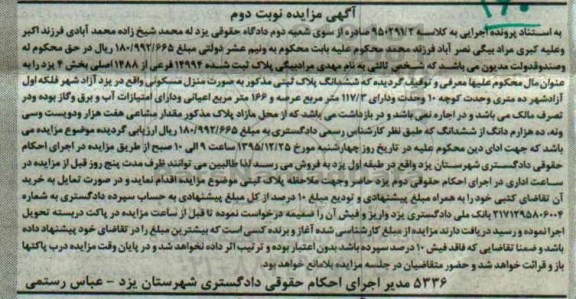 آگهی مزایده نوبت دوم
به استناد پرونده اجرایی به کلاسه ۹۵۰۲۹۱/۲ صادره از سوی شعبه دوم دادگاه حقوقی یزد له محمد شیخ زاده محمد آبادی فرزند اکبر
وعلیه کبری مراد بیگی نصر آباد فرزند محمد محکوم علیه بابت محکوم به ونیم عشر دولتی مبلغ ۱۸۰/۹۹۲/۶۶۵ ریال در حق محکوم له
وصندوقدولت مدیون می باشد که شخص ثالثی به نام مهدی مرادبیگی پلاک ثبت شده ۱۴۹۹۴ فرعی از ۱۴۸۸ اصلی بخش ۴ یزد را به
عنوان مال محکوم علیها معرفی و توقیف گردیده که ششدانگ پلاک ثبتی مذکور به صورت منزل مسکونی واقع در یزد آزاد شهر فلکه اول
آزادشهر ده متری وحدت کوچه ۱۰ وحدت ودارای ۱۱۷/۳ متر مربع عرصه و ۱۶۶ متر مربع اعیانی ودارای امتیازات آب و برق وگاز بوده ودر
تصرف مالک می باشد و در اجاره نمی باشد و در بازداشت می باشد که از محل مازاد پلاک مذکور مقدار مشاعی هفت هزار ودویست وسی
ونه، ده هزارم دانگ از ششدانگ که طبق نظر کارشناس رسمی دادگستری به مبلغ ۱۸۰/۹۹۲/۶۶۵ ریال ارزیابی گردیده موضوع مزایده می
باشد که جهت ادای دین محکوم علیه در تاریخ روز چهارشنبه مورخ ۱۳۹۵/۱۲/۲۵ ساعت ۹ الی ۱۰ صبح از طریق مزایده در اجرای احکام
حقوقی دادگستری شهرستان یزد واقع در طبقه اول یزد به فروش می رسد لذا طالبین می توانند ظرف مدت پنج روز قبل از مزایده در
ساعت اداری در اجرای احکام حقوقی دوم یزد حاضر وجهت ملاحظه پلاک ثبتی موضوع مزایده اقدام نماید و در صورت تمایل به خرید
آن تقاضای کتبی خود را به همراه مبلغ پیشنهادی و تودیع مبلغ ۱۰ درصد از کل مبلغ پیشنهادی به حساب سپرده دادگستری به شماره
۲۱۷۱۲۹۵۸۰۶۰۰۴ بانک ملی دادگستری یزد واریز و فیش آن را ضمیمه درخواست نموده تا قبل از ساعت مزایده در پاکت دربسته تحویل
اجرا نموده و رسید دریافت دارند مزایده از مبلغ کارشناسی شده آغاز و برنده کسی است که بیشترین مبلغ را در تقاضای خود پیشنهاد داده
باشد و ضمنا تقاضایی که فاقد فیش ۱۰ درصد سپرده باشد بدون اعتبار بوده و ترتیب اثر داده نخواهد شد و در پایان وقت مزایده درب پاکتها
باز و قرائت خواهد شد و حضور متقاضیان در جلسه مزایده بلامانع خواهد بود.
۵۳۳۶ مدیر اجرای احکام حقوقی دادگستری شهرستان یزد - عباس رستمی